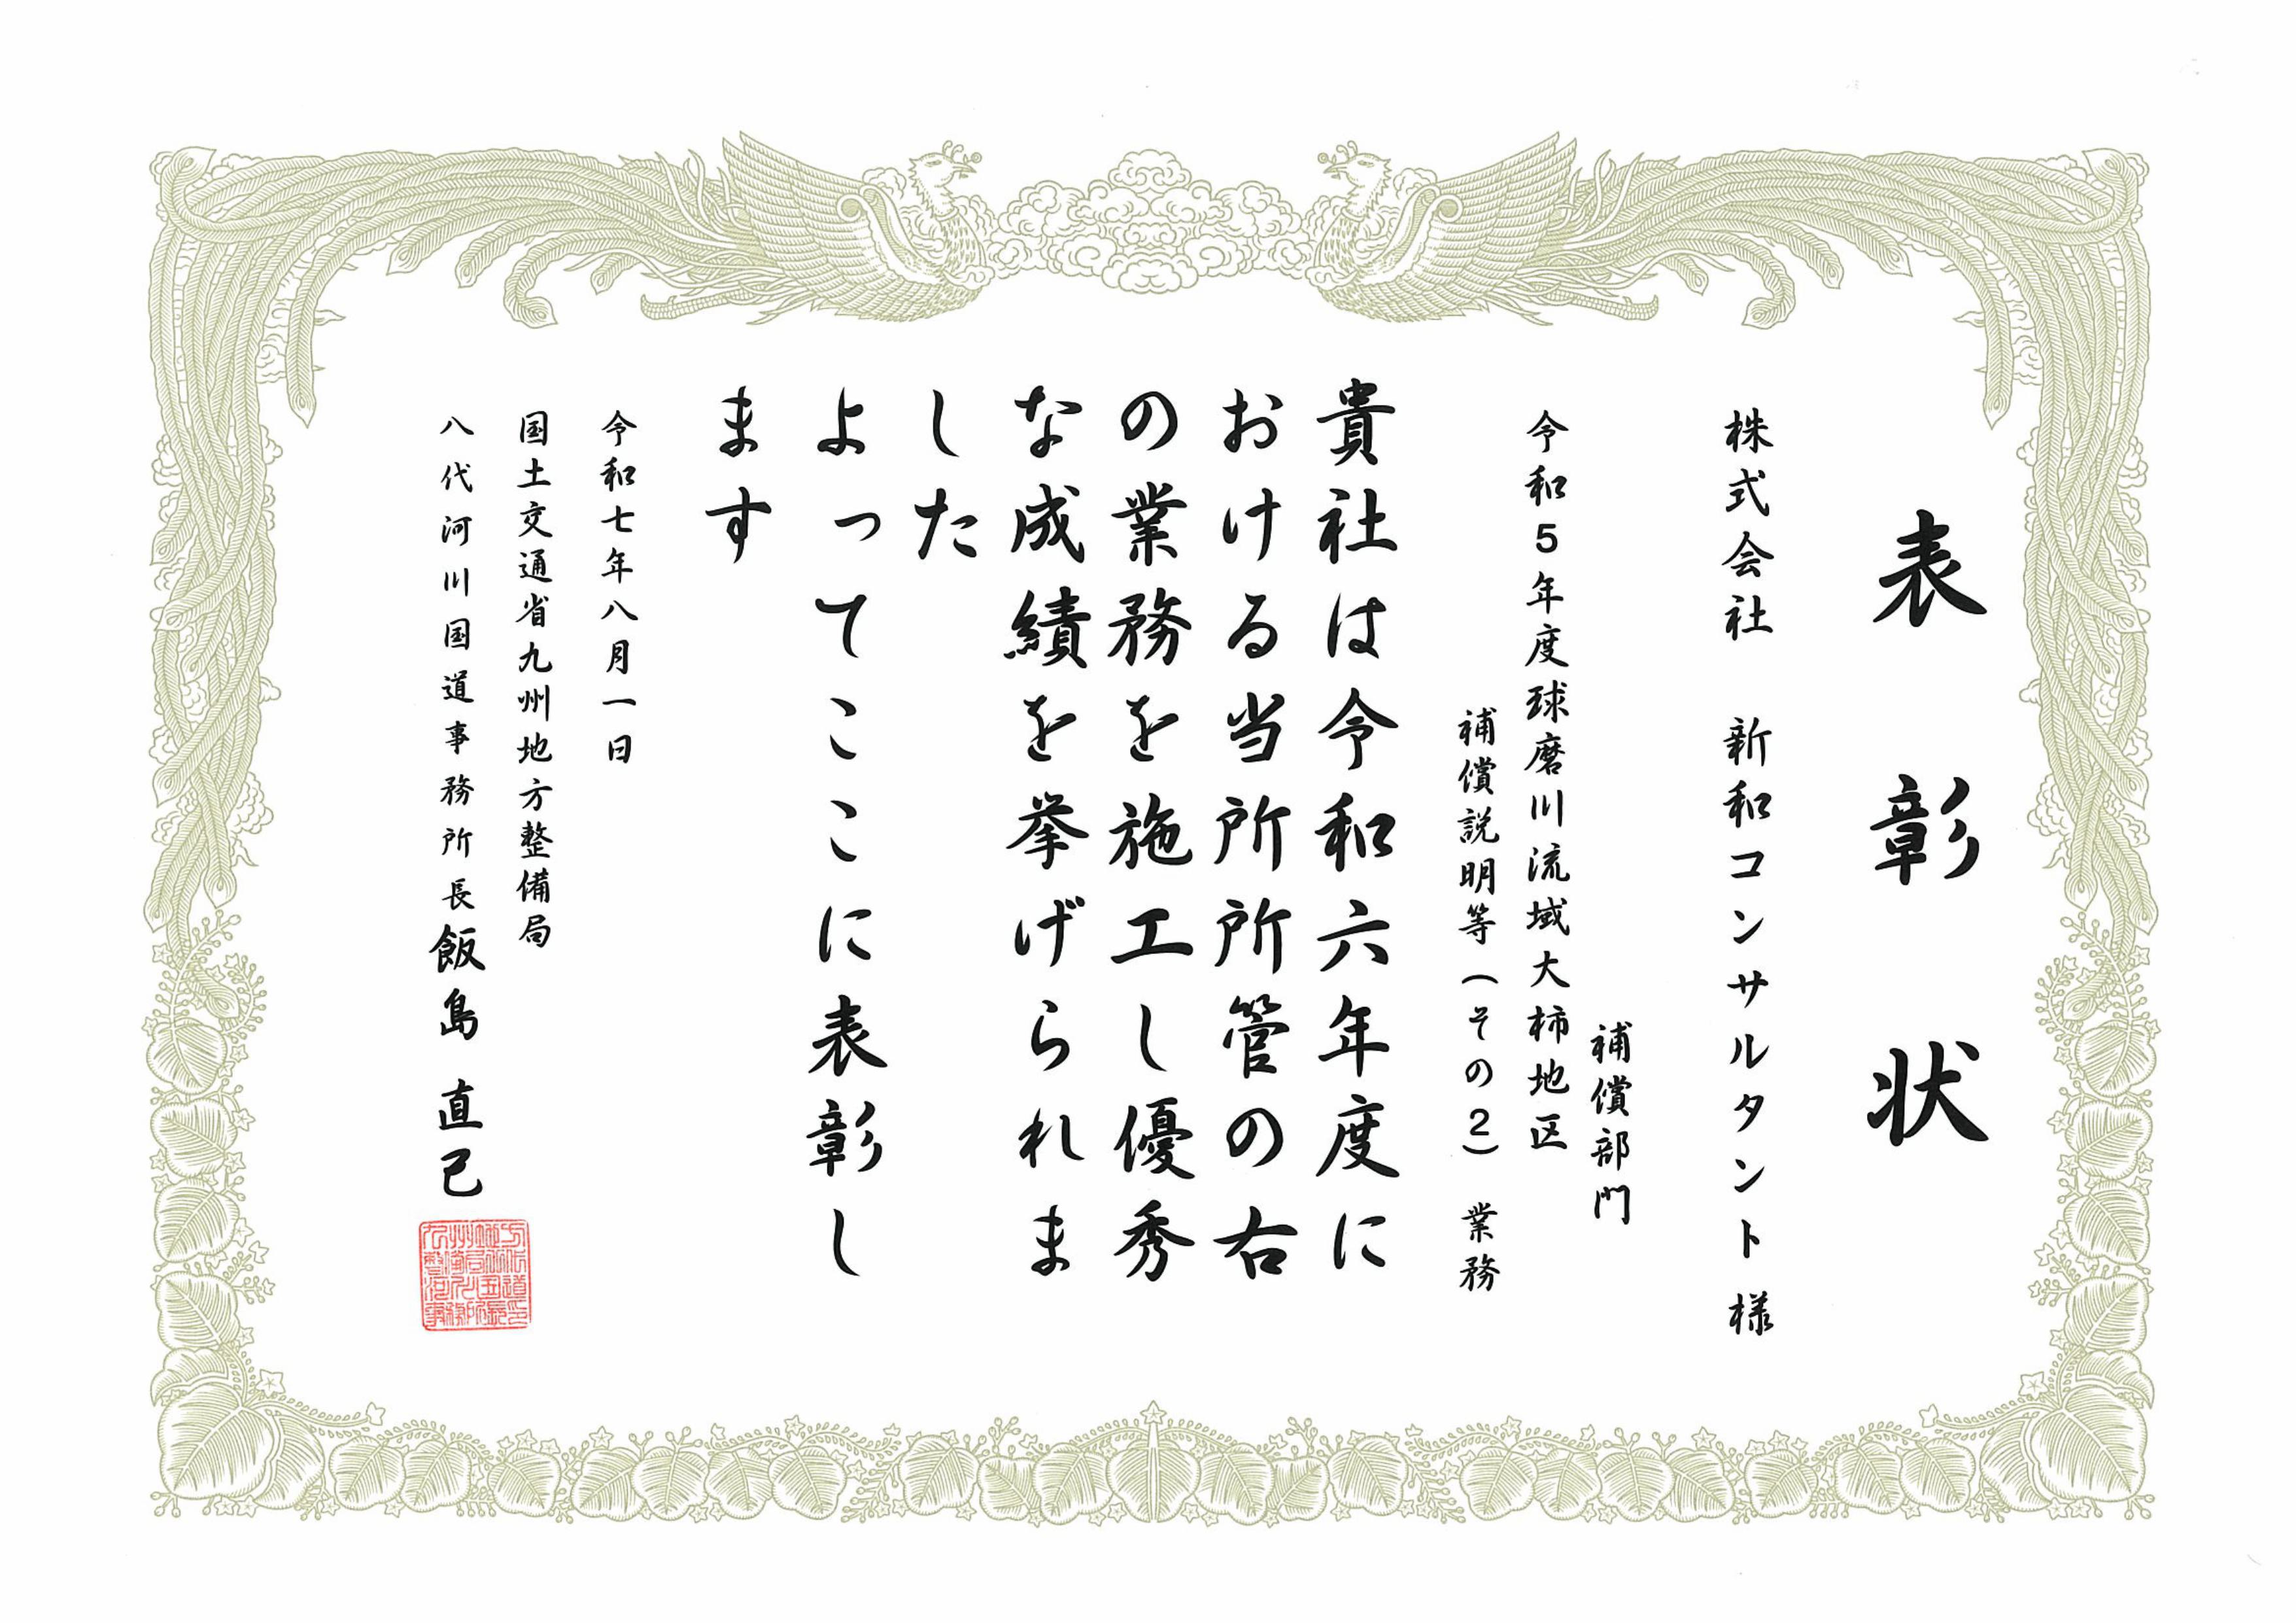 表彰状
株式会社　新和コンサルタント様
補償部門
令和5年度球磨川流域大柿地区
補償説明等（その2）業務
貴社は令和六年度に
おける当所所管の右
の業務を施工し優秀
な成績を挙げられま
した
よってここに表彰し
ます
令和七年八月一日
国土交通省九州地方整備局
八代河川国道事務所長飯島　直己